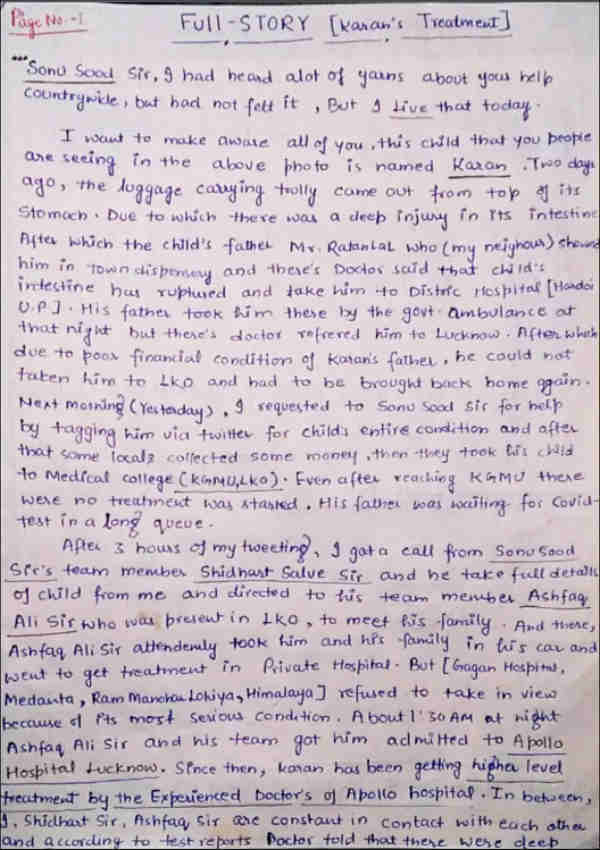 Page No. - 1
FUll-STORY [Karan's Treatment]
"Sonu Sood Sir, I had heard alot of yarns about your help
Countrywide, but had not felt it, But I Live that today.
I want to make aware all of you, this child that you people
are seeing in the above photo is named Karan. Two days
ago, the luggage carrying trolly came out from top of its
Stomach. Due to which there was a deep injury in its intestine
After which the child's father Mr. Ratanlal who (my neighour) showed
him in town dispensery and there's Doctor said that child's
intestine has ruptured and take him to Distric Hospital [Hardoi
U.P]. His father took him there by the govt. ambulance at
that night but there's doctor refrered him to Lucknow. After which
due to poor financial condition of Karan's father, he could not
taken him to LKO and had to be brought back home again.
Next morning (Yesterday), I requested to Sonu Sood Sir for help
by tagging him via twitter for child's entire condition and after
that some locals collected some money, then they took his child
to Medical college (KGMU,LKO). Even after reaching KGMU there
were no treatment was started. His father was waiting for Covid-
test in a long queue.
After 3 hours of my tweeting, I got a call from Sonu Sood
Sir's team member Shidhart Salve Sir and he take full details
of child from me and directed to his team member Ashfaq
Ali Sir who was present in LKO, to meet his family. And there,
Ashfaq Ali Sir attendemly took him and his family in his car and
went to get treatment in Private Hospital. But [Gagan Hospital,
Medanta, Ram Manohar Lohiya, Himalaya] refused to take in view
because of its most serious condition. About 1'30 AM at night
Ashfaq Ali Sir and his team got him admitted to Apollo
Hospital Lucknow. Since then, karan has been getting higher level
treatment by the Experienced Doctor's of Apollo hospital. In between,
I, Shidhart Sir, Ashfaq Sir are constant in contact with each other
and according to test reports Doctor told that there were deep